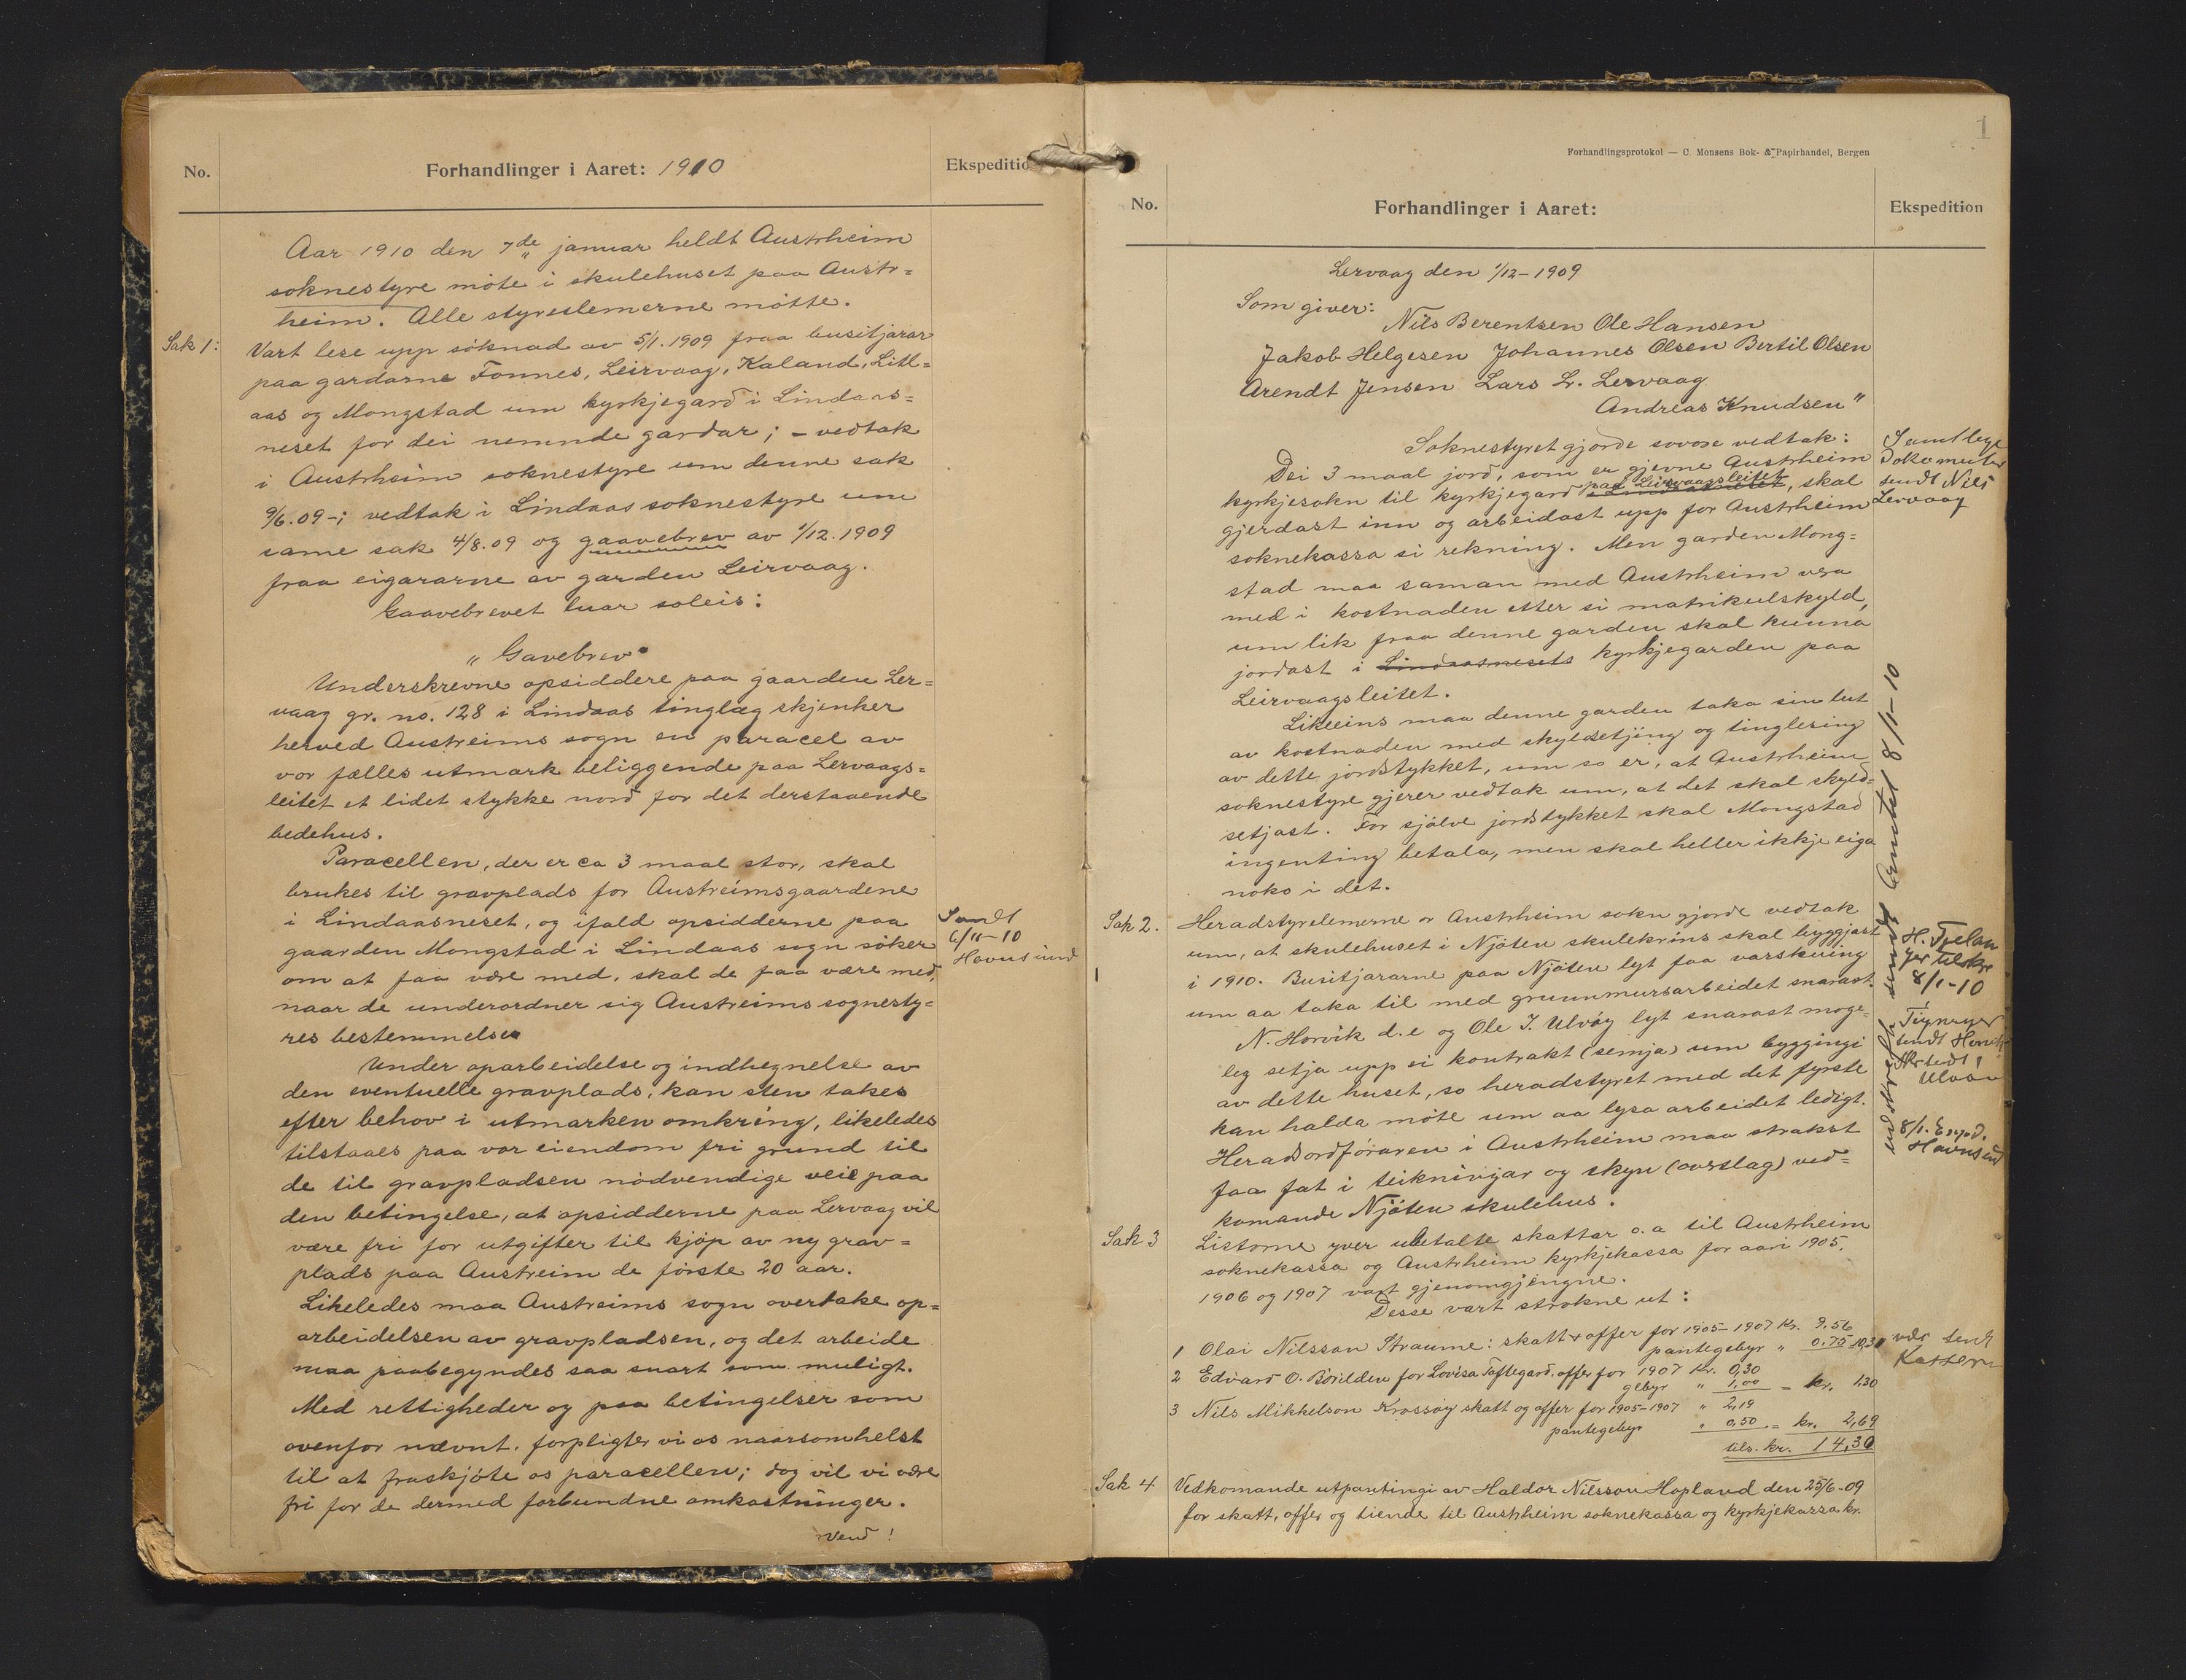 No.
Forhandlinger i Aaret: 1910
Ekspeditio
Aar 1910 den 7de januar heldt Austrheim
soknestyre møte i skulehuset paa Austr=
heim. Alle styreslemerne møtte.
Sak 1:
Vart lese upp søknad av 5/1. 1909 fraa busitjarar
paa gardarne Fonnes, Leirvaag, Kaland, Litl=
aas og Mongstad um kyrkjegard i Lindaas=
neset for dei nemnde gardar; - vedtak
i Austrheim soknestyre um denne sak
9/6.09-; vedtak i Lindaas soknestyre um
same sak 4/8.09 og gaavebrev av 1/12.1909
fraa eigararne av garden Leirvaag.
Gaavebrevet luar soleis:
"Gavebrev"
Underskrevne opsiddere paa gaarden Ler=
vaag gr. no. 128 i Lindaas tinglag skjenker
herved Austreims sogn en paracel av
vor fælles utmark beliggende paa Lervaags=
leitet et lidet stykke nord for det derstaaende
bedehus.
Paracellen, der er ca 3 maal stor, skal
brukes til gravplads for Austreimsgaardene
i Lindaasneset, og ifald opsidderne paa
gaarden Mongstad i Lindaas sogn søker
om at faa være med, skal de faa være med,
naar de underordner sig Austreims sognesty=
res bestemmelser
Sendt
6/11-10
Hovus und
Under oparbeidelse og indhegnelse av
den eventuelle gravplads, kan sten takes
efter behov i utmarken omkring, likeledes
tilstaaes paa vor eiendom fri grund til
de til gravpladsen nødvendige veie paa
den betingelse, at opsidderne paa Lervaag vil
være fri for utgifter til kjøp av ny grav=
plads paa Austreim de første 20 aar.
Likeledes maa Austreims sogn overtake op=
arbeidelsen av gravpladsen, og det arbeide
maa paabegyndes saa snart som muligt.
Med rettigheder og paa betingelser som
ovenfor nævnt, forpligter vi os naarsomhelst
til at fraskjøte os paracellen; dog vil vi være
fri for de dermed forbundne omkostninger.
Vend!
1
Forhandlingsprotokol — C. Monsens Bok- & Papirhandel, Bergen
No.
Forhandlinger i Aaret:
Ekspedition
Lervaag den 1/12-1909
Som giver:
Nils Berentsen Ole Hansen
Jakob Helgesen Johannes Olsen Bertil Olsen
Arendt Jensen Lars L. Lervaag
Andreas Knudsen"
Soknestyret gjorde sovore vedtak:
Dei 3 maal jord, som er gjevne Austrheim
kyrkjesokn til kyrkjegard paa Leirvaagsleitet, skal
gjerdast inn og arbeidast upp for Austrheim
soknekassa si rekning. Men garden Mong=
stad maa saman med Austrheim vera
med i kostnaden etter si matrikulskyld,
um lik fraa denne garden skal kunna
jordast i Lindaasnesets kyrkjegarden paa
Leirvaagsleitet.
Samtlege
Dokomenter
sendt Nils
Lervaag
Likeeins maa denne garden taka sin lut
av kostnaden med skyldsetjing og tinglesing
av dette jordstykket, um so er, at Austrheim
soknestyre gjerer vedtak um, at det skal skyld=
setjast. For sjølve jordstykket skal Mongstad
ingenting betala, men skal heller ikkje eiga
noko i det.
Sak 2.
Heradstyrelemerne or Austrheim sokn gjorde vedtak
um, at skulehuset i Njøten skulekrins skal byggjast
i 1910. Busitjararne paa Njøten lyt faa varskuing
um aa taka til med grunnmursarbeidet snarast.
N. Horvik d.e og Ole J. Uløy lyt snarast moge=
leg setja upp ei kontrakt (semja) um byggingi
av dette huset, so heradstyret med det fyrste
kan halda møte um aa lysa arbeidet ledigt.
Heradsordføraren i Austrheim maa strakst
faa fat i teikningar og skyn (overslag) ved=
komande Njøten skulehus.
8/1-10
sendt
8/1.
Sak 3
Listorne yver ubetalte skattar o.a til Austrheim
soknekassa og Austrheim kyrkjekassa for aari 1905,
1906 og 1907 vart gjenomgjengne.
Desse vart strokne ut:
1 Olai Nilsson Straume: skatt & offer for 1905-1907 kr. 9.56
pantegebyr " 0.75 10,31
2 Edvard O. Børilden for Lovisa Toftegard. offer for 1907 kr. 0,30
gebyr " 1,00 = kr. 1,30
3 Nils Mikkelson Krossøy skatt og offer for 1905-1907 " 2,19
pantegebyr " 0,50 = kr. 2,69
tils. kr. 14,30
sendt
Kasserer
Sak 4
Vedkomande utpantingi av Haldor Nilsson Hopland den 25/6-09
for skatt, offer og tiende til Austrheim soknekassa og kyrkjekassa kr.